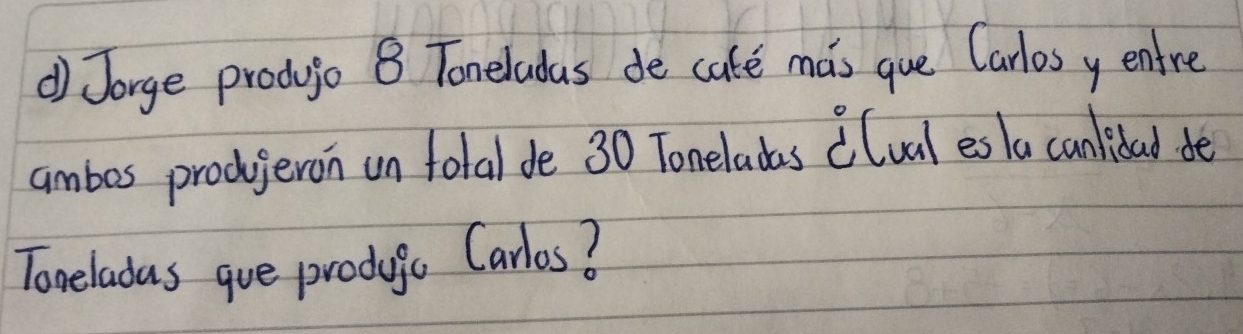 d) Jorge produjo 8 Toneladas de café más que Carlos y entre
ambos produjerón un total de 30 Toneladas ¿Cual es la cantidad de
Toneladas que produjo Carlos?